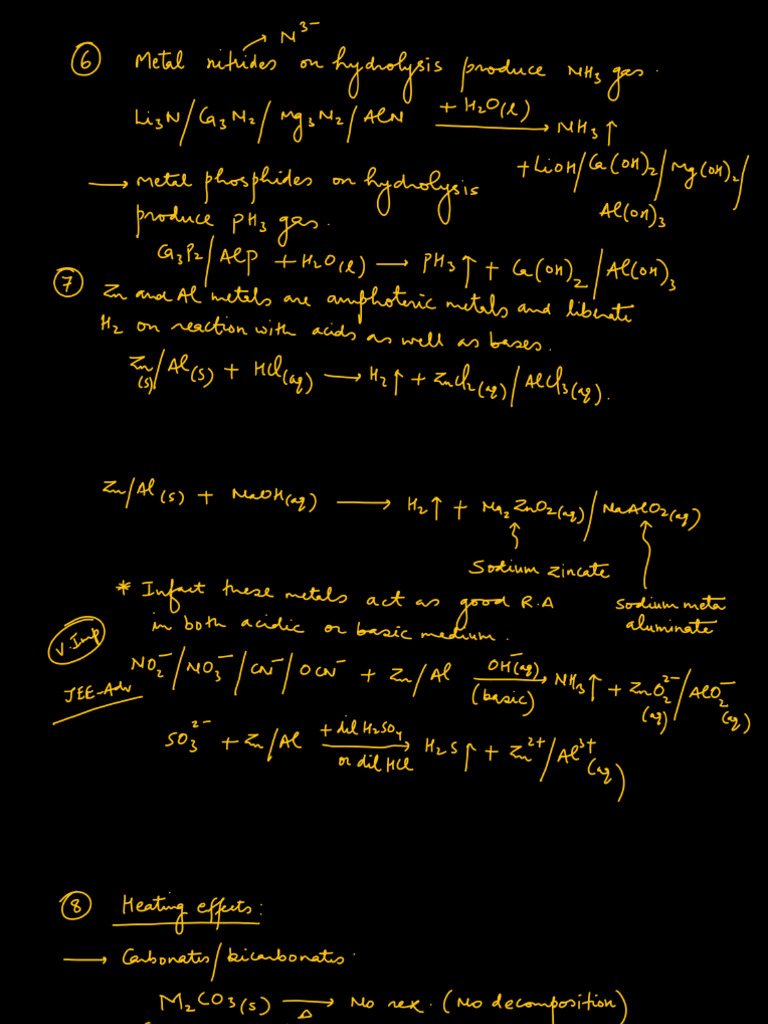 N³⁻
⑥ Metal nitrides on hydrolysis produce NH₃ gas.
Li₃N/Ca₃N₂/Mg₃N₂/AlN + H₂O(l) ⟶ NH₃↑
+ LiOH/Ca(OH)₂/Mg(OH)₂/
Al(OH)₃
⟶ Metal phosphides on hydrolysis
produce PH₃ gas.
Ca₃P₂/AlP + H₂O(l) ⟶ PH₃↑ + Ca(OH)₂/Al(OH)₃
⑦ Zn and Al metals are amphoteric metals and liberate
H₂ on reaction with acids as well as bases.
Zn(s)/Al(s) + HCl(aq) ⟶ H₂↑ + ZnCl₂(aq)/AlCl₃(aq).
Zn/Al(s) + NaOH(aq) ⟶ H₂↑ + Na₂ZnO₂(aq)/NaAlO₂(aq)
Sodium zincate
sodium meta
aluminate
* Infact these metals act as good R.A
in both acidic or basic medium.
V.Imp
JEE-Adv
NO₂⁻/NO₃⁻/CN⁻/OCN⁻ + Zn/Al OH⁻(aq) (basic) ⟶ NH₃↑ + ZnO₂²⁻(aq)/AlO₂⁻(aq)
SO₃²⁻ + Zn/Al + dil H₂SO₄ or dil HCl ⟶ H₂S↑ + Zn²⁺/Al³⁺(aq)
⑧ Heating effects:
⟶ Carbonates/bicarbonates.
M₂CO₃(s) ⟶ Δ No rex. (No decomposition)